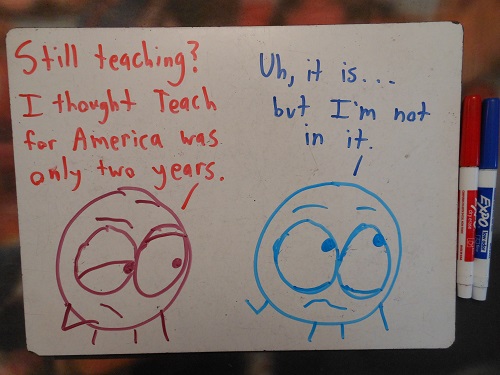 Still teaching?
I thought Teach
for America was
only two years.
Uh, it is...
but I'm not
in it.
EXPO